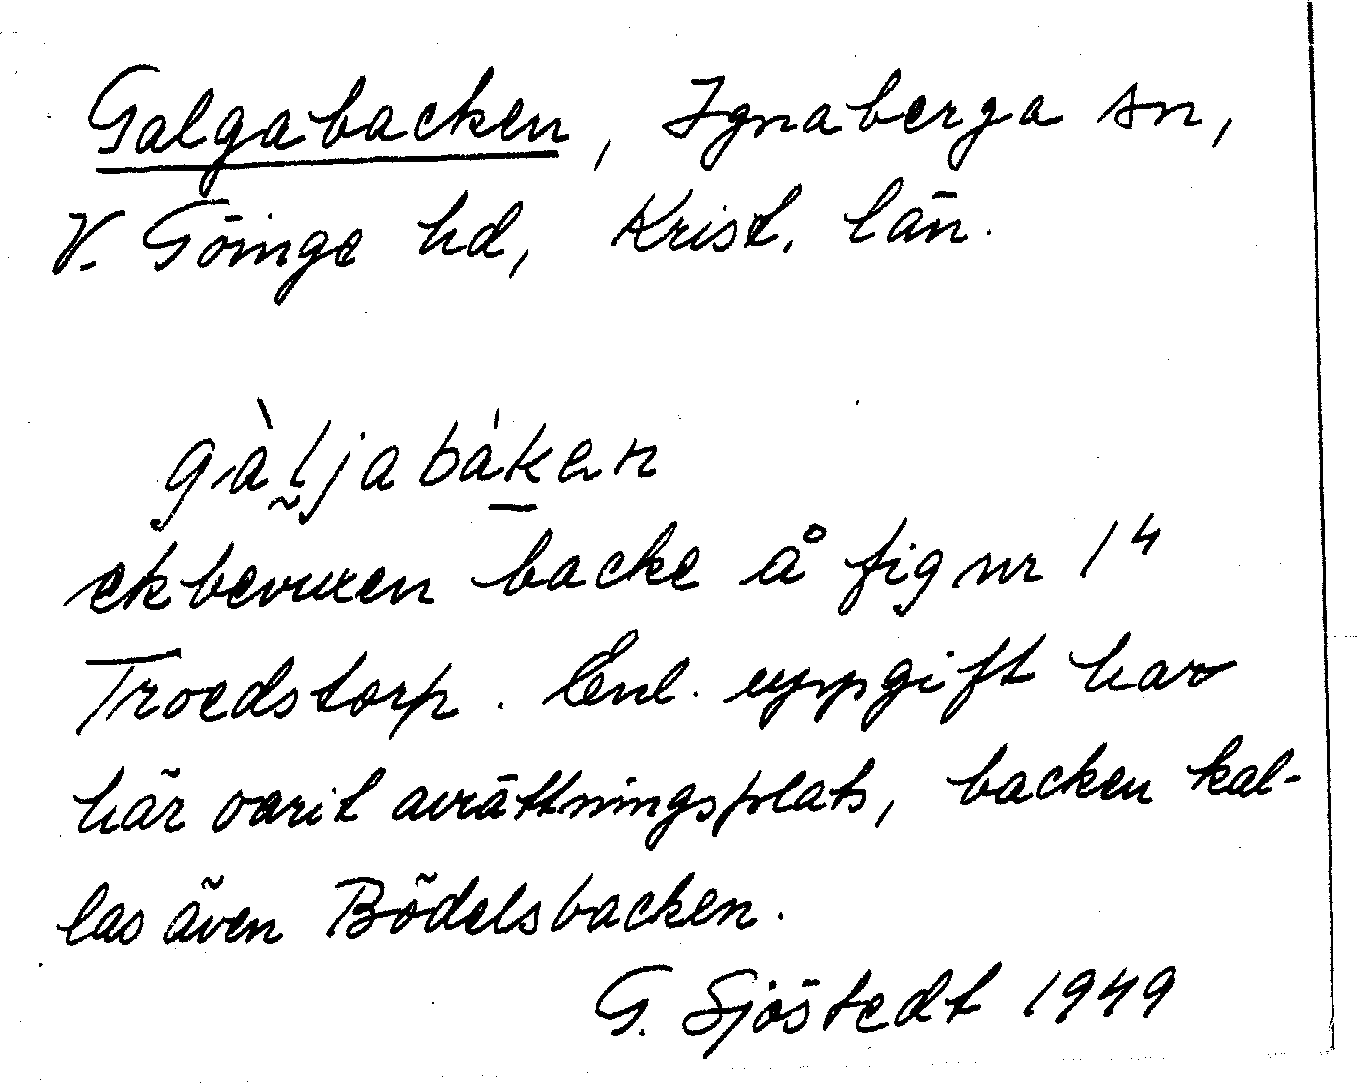 Galgabacken, Ignaberga sn,
V. Göinge hd, Krist. län.
gàljabáken
ekbevuxen backe å fig nr 14
Troedstorp. Enl. uppgift har
här varit avrättningsplats, backen kal-
las även Bödelsbacken.
G. Sjöstedt 1949